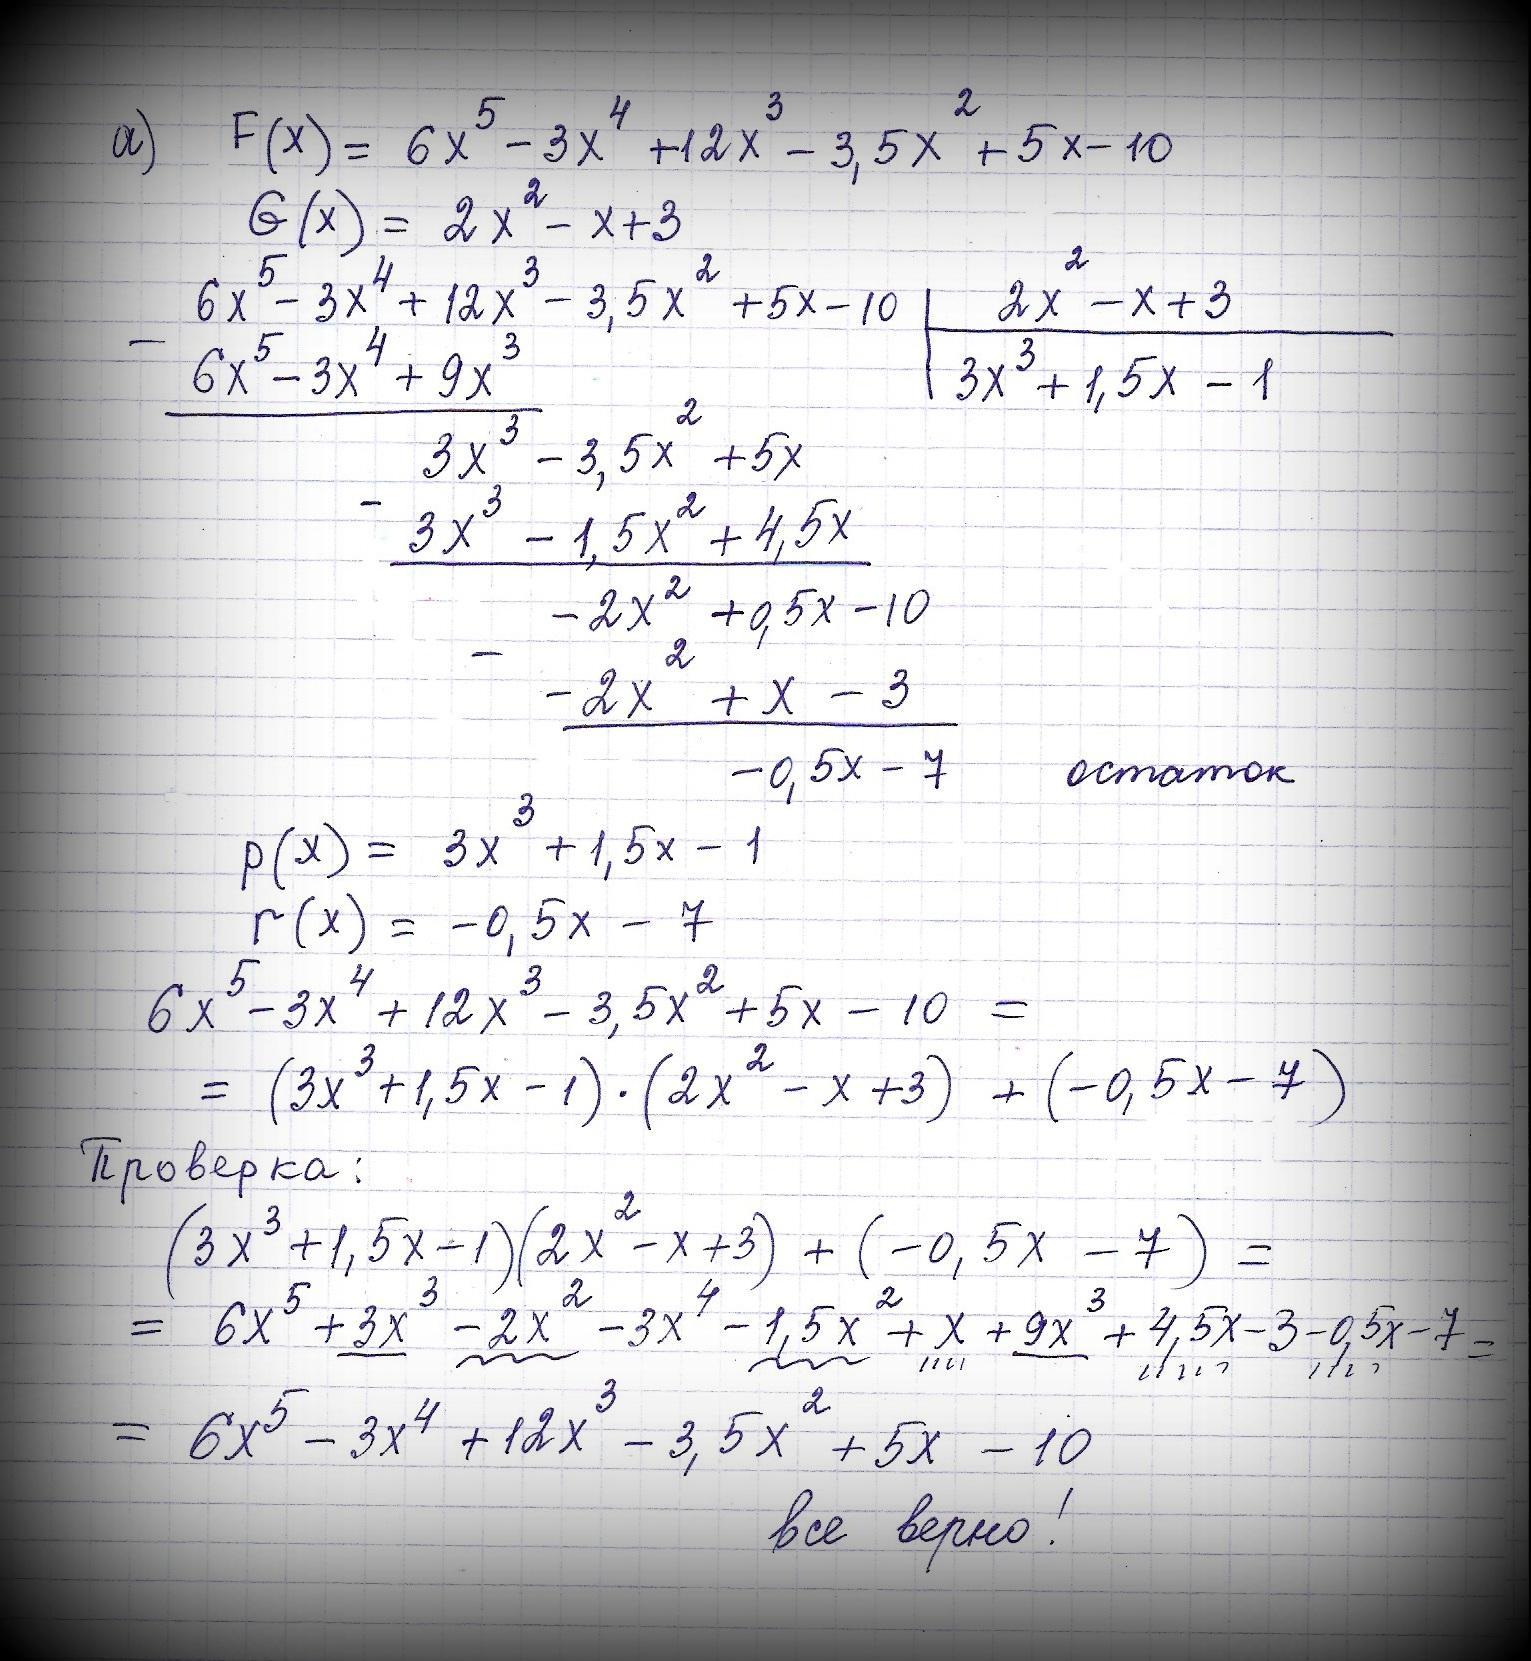 а) F(x) = 6x⁵ - 3x⁴ + 12x³ - 3,5x² + 5x - 10
G(x) = 2x² - x + 3
6x⁵ - 3x⁴ + 12x³ - 3,5x² + 5x - 10 | 2x² - x + 3
- 6x⁵ - 3x⁴ + 9x³ | 3x³ + 1,5x - 1
3x³ - 3,5x² + 5x
- 3x³ - 1,5x² + 4,5x
-2x² + 0,5x - 10
- -2x² + x - 3
-0,5x - 7 остаток
p(x) = 3x³ + 1,5x - 1
r(x) = -0,5x - 7
6x⁵ - 3x⁴ + 12x³ - 3,5x² + 5x - 10 =
= (3x³ + 1,5x - 1) · (2x² - x + 3) + (-0,5x - 7)
Проверка:
(3x³ + 1,5x - 1)(2x² - x + 3) + (-0,5x - 7) =
= 6x⁵ + 3x³ - 2x² - 3x⁴ - 1,5x² + x + 9x³ + 4,5x - 3 - 0,5x - 7 =
= 6x⁵ - 3x⁴ + 12x³ - 3,5x² + 5x - 10
все верно!